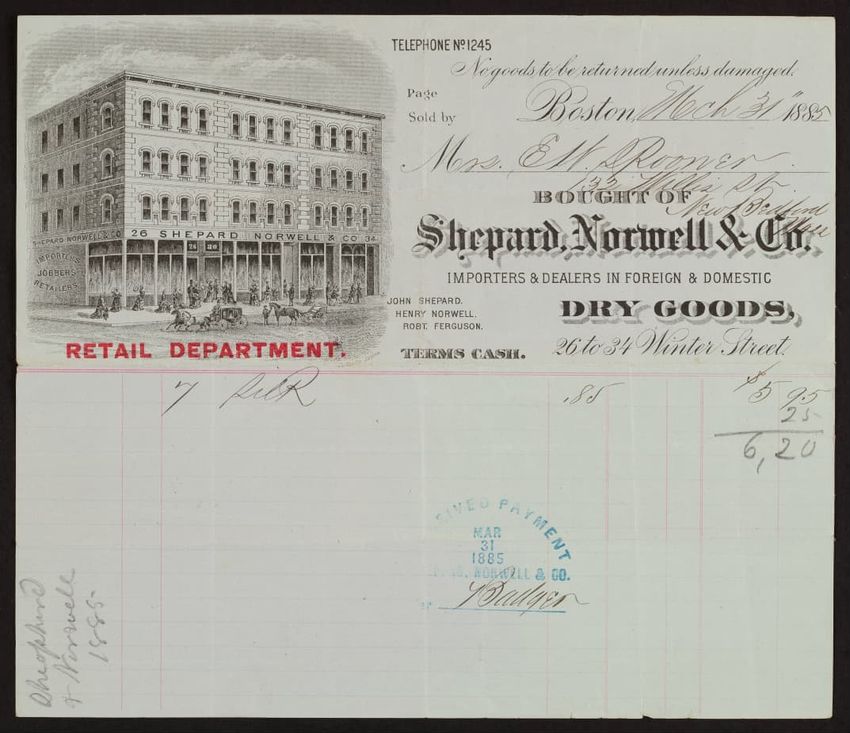 TELEPHONE No 1245
No goods to be returned unless damaged.
Page
Sold by
Boston, Mch 31" 1885
Mrs. E W
33 St.
New Bedford
Mass
BOUGHT OF
Shepard, Norwell & Co.
IMPORTERS & DEALERS IN FOREIGN & DOMESTIC
DRY GOODS,
26 to 34 Winter Street.
JOHN SHEPARD.
HENRY NORWELL.
ROBT. FERGUSON.
TERMS CASH.
SHEPARD NORWELL & CO
26 SHEPARD NORWELL & CO 34
26 26
IMPORTERS
JOBBERS
RETAILERS
RETAIL DEPARTMENT.
7 Silk .85 $5 95
25
6,20
PAYMENT
MAR
31
1885
NORWELL & CO.
Badger
Shepherd
& Norwell
1885